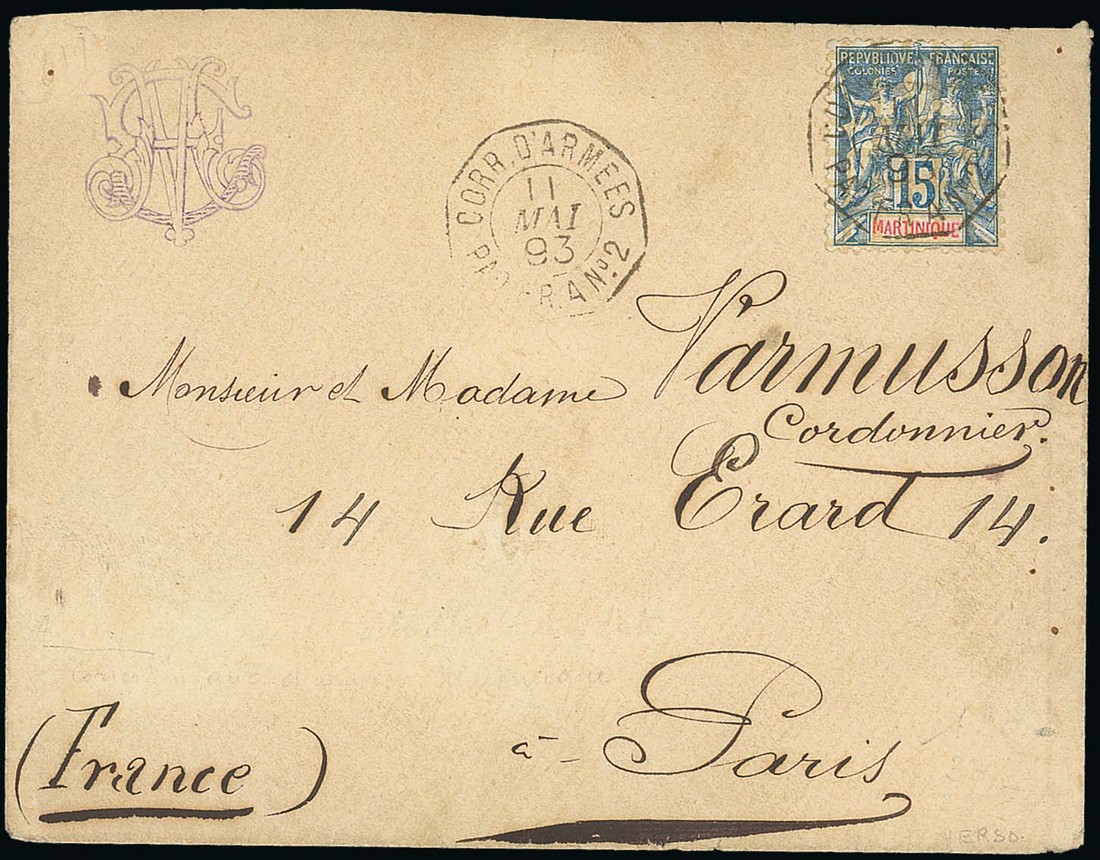 REPVBLIQVE FRANÇAISE
COLONIES POSTE
15
MARTINIQUE
CORR. D'ARMEES
11
MAI
93
PAQ. FR. A Nº 2
Monsieur et Madame Varmusson
Cordonnier.
14 Rue Erard 14.
à Paris
(France)
VERSO.